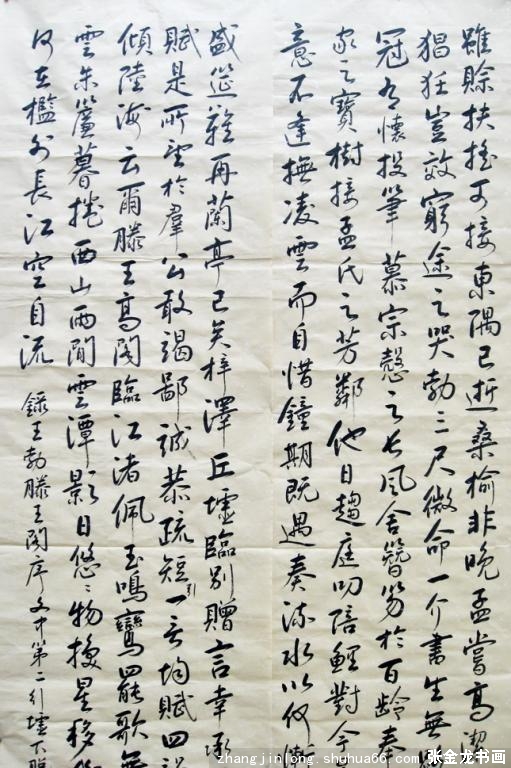 雖賒扶搖可接東隅已逝桑榆非晚孟嘗高潔
猖狂豈效窮途之哭勃三尺微命一介書生無
冠有懷投筆慕宗慤之長風舍簪笏於百齡奉
家之寶樹接孟氏之芳鄰他日趨庭叨陪鯉對今
意不逢撫凌雲而自惜鐘期既遇奏流水以何慚
盛筵難再蘭亭已矣梓澤丘墟臨別贈言幸承
賦是所望於羣公敢竭鄙誠恭疏短引一言均賦四
傾陸海云爾滕王高閣臨江渚佩玉鳴鸞罷歌舞
雲朱簾暮捲西山雨閒雲潭影日悠悠物換星移
何在檻外長江空自流
錄王勃滕王閣序文中第二
zhangjinlong.shuhua66.com 张金龙书画